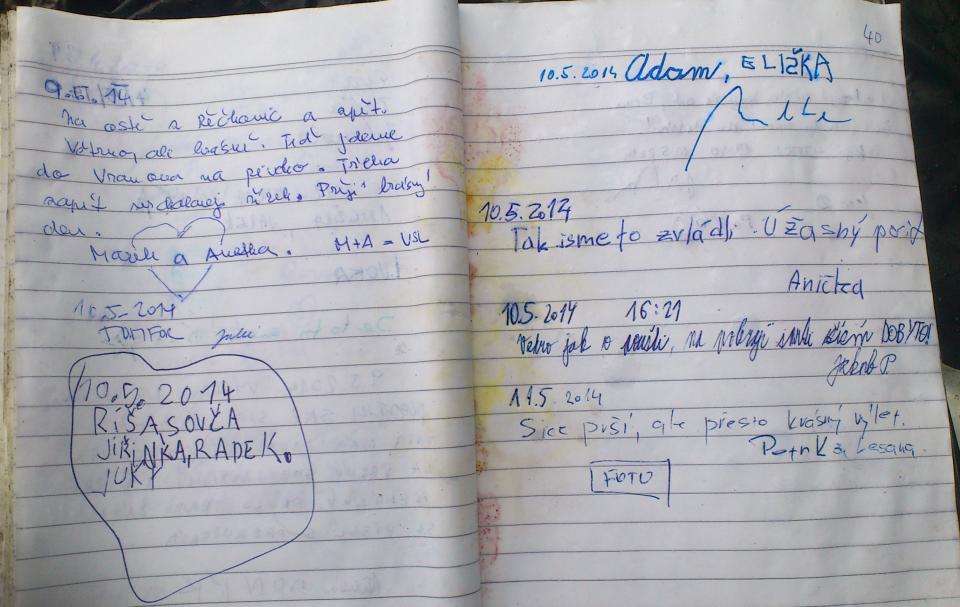 9.5./14
Na ostě z Réčkovic a opět.
ale krásně. Teď jdeme
do Vranova na pivko. Třeba
zapít Přeji krásný
den.
Marek a Anetka. M+A = VSL
10.5.2014
TOMFOR
10.5. 2014
RÍŠASOVČA
JIŘINKA, RADEK.
JUKY
40
10.5.2014 Adam, ELIŽKA
10.5.2014
Tak jsme to zvládli. Úžasný pocit
Anička
10.5.2014 16:21
Vedro jak o poušti, na pokraji smrti DOBYTO!
Jakub P
11.5.2014
Sice prší, ale přesto krásný výlet.
Petr K za Lesana.
FOTO